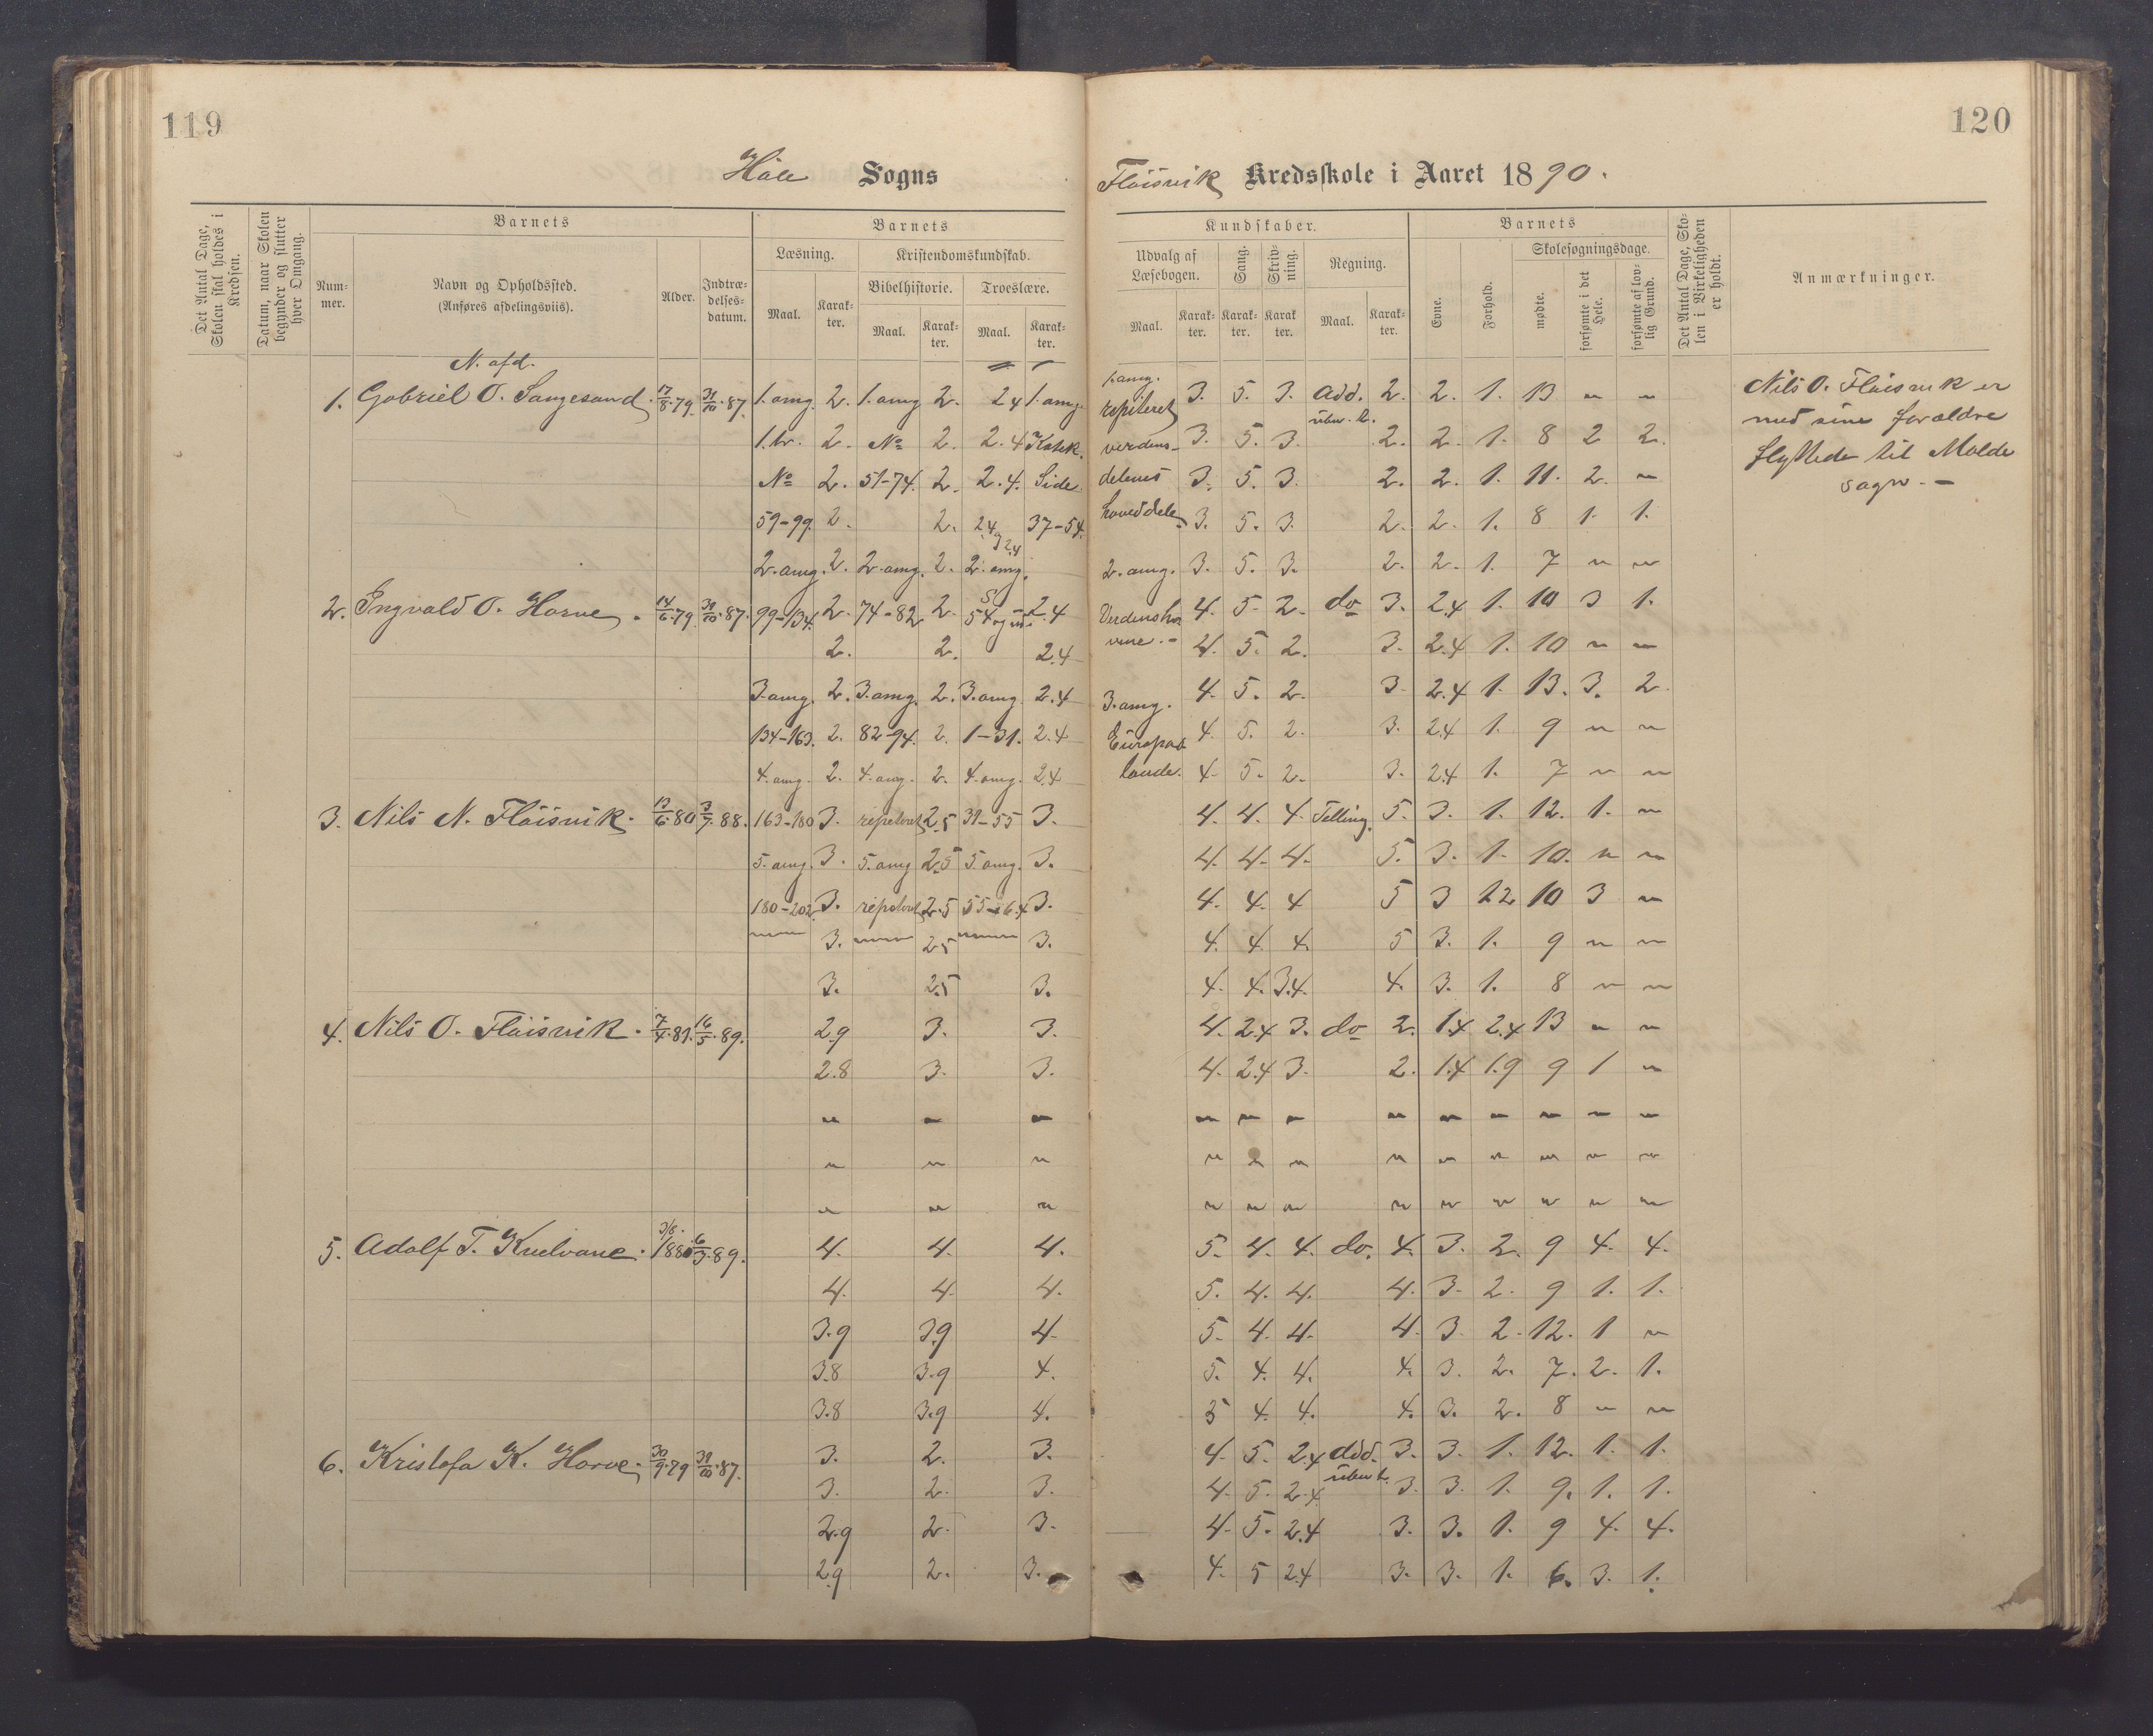 119
Håle Sogns
Det Antal Dage, Skolen skal holdes i Kredsen.
Datum, naar Skolen begynder og slutter hver Omgang.
Barnets
Nummer.
Navn og Opholdssted.
(Anføres afdelingsviis).
Alder.
Indtrædelsesdatum.
Barnets
Læsning.
Kristendomskundskab.
Bibelhistorie. Troeslære.
Maal. Karakter. Maal. Karakter. Maal. Karakter.
N. afd.
1. Gabriel O. Sangesand. 17/8.79. 31/10.87. 1. omg. 2. 1. omg 2. 2.4 1. omg.
1. br. 2. No 2. 2.4 Katek.
No 2. 51-74. 2. 2.4. Side
59-99. 2. 2. 2.4 37-54.
2. omg. 2. 2. omg. 2. 2. omg. 2.4
2. Ingvald O. Horve. 14/6.79. 31/10.87. 99-134. 2. 74-82 2. 54 2.4
2. 2. 2.4
3. omg. 2. 3. omg. 2. 3. omg. 2.4
134-163. 2. 82-94. 2. 1-31. 2.4
4. omg. 2. 4. omg. 2. 4. omg. 2.4
3. Nils N. Fløisvik. 13/6.80 3/7.88. 163-180 3. repeteret 2.5 31-55 3.
5. omg. 3. 5. omg 2.5 5. omg. 3.
180-202. 3. repeteret 2.5 55-64 3.
3. 2.5 3.
3. 2.5 3.
4. Nils O. Fløisvik. 7/4.81. 16/5.89. 2.9 3. 3.
2.8 3. 3.
" " "
" " "
" " "
5. Adolf T. Knelvane. 3/8. 1880 6/3.89. 4. 4. 4.
4. 4. 4.
3.9 3.9 4.
3.8 3.9 4.
3.8 3.9 4.
6. Kristofa K. Horve. 30/9.79 31/10.87. 3. 2. 3.
3. 2. 3.
2.9 2. 3.
2.9 2. 3.
120
Fløisvik Kredsskole i Aaret 1890.
Kundskaber.
Udvalg af Læsebogen.
Sang.
Skrivning.
Regning.
Maal. Karakter. Karakter. Karakter Maal. Karakter.
Barnets
Evne.
Forhold.
Skolesøgningsdage.
mødte.
forsømte i det Hele.
forsømte af lovlig Grund.
Det Antal Dage, Skolen i Virkeligheden er holdt.
Anmærkninger.
1. omg.
repeteret 3. 5. 3. Add. 2. 2. 1. 13 " "
uben. t.
verdens- 3. 5. 3. 2. 2. 1. 8 2 2.
delenes 3. 5. 3. 2. 2. 1. 11. 2. "
hoveddele 3. 5. 3. 2. 2. 1. 8 1. 1.
2. omg. 3. 5. 3. 2. 2. 1. 7 " "
Verdensha 4. 5. 2. do 3. 2.4 1. 10 3 1.
vene. 4. 5. 2. 3. 2.4 1. 10 " "
3. omg. 4. 5. 2. 3. 2.4 1. 13. 3. 2.
Europas 4. 5. 2. 3. 2.4 1. 9 " "
lande. 4. 5. 2. 3. 2.4 1. 7 " "
4. 4. 4. Telling. 5. 3. 1. 12. 1. "
4. 4. 4. 5. 3. 1. 10. " "
4. 4. 4 5 3 1.2 10 3 "
4. 4. 4. 5 3. 1. 9 " "
4. 4. 3.4. 4. 3. 1. 8 " "
4. 2.4 3. do 2. 1.4 2.4 13 " "
4. 2.4 3. 2. 1.4 1.9 9 1 "
" " " " " " " " "
" " " " " " " " "
" " " " " " " " "
5. 4. 4. do. 4. 3. 2. 9 4. 4.
5. 4. 4. 4. 3. 2. 9 1. 1.
5. 4. 4. 4. 3. 2. 12. 1 "
5. 4. 4. 4. 3. 2. 7. 2. 1.
5 4. 4. 4. 3. 2. 8 " "
4. 5. 2.4 Add. 3. 3. 1. 12. 1. 1.
uben t.
4. 5. 2.4 3. 3. 1. 9. 1. 1.
4. 5. 2.4 3. 3. 1. 9 4. 4.
4. 5 2.4 3. 3. 1. 6. 3. 1.
Nils O. Fløisvik er
med sine forældre
flyttede til Molde
sogn. -